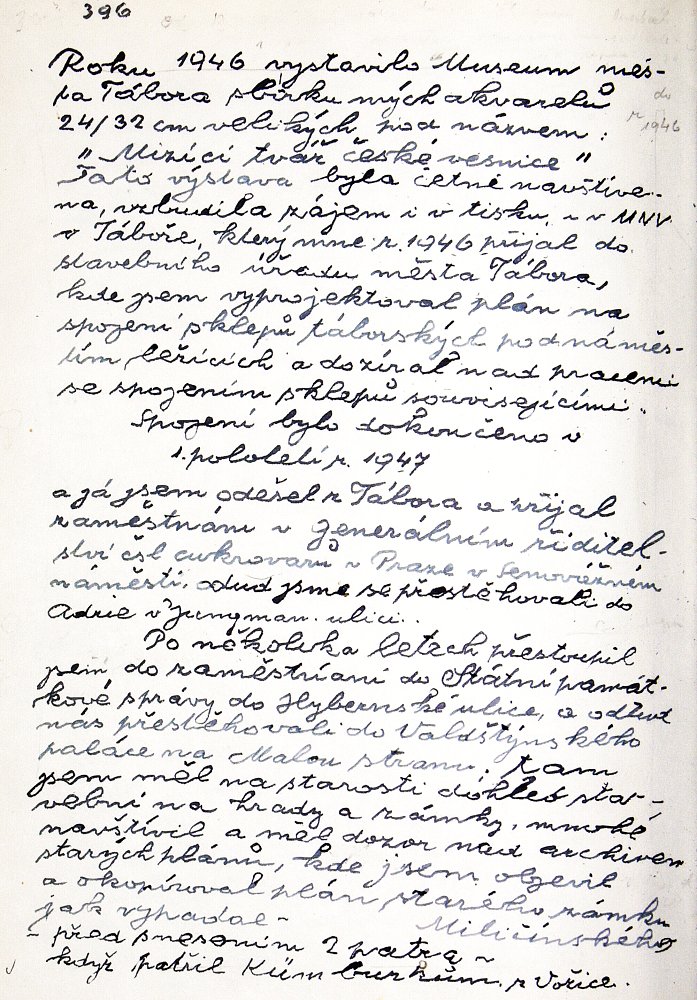 396
Roku 1946 vystavilo Museum měs-
ta Tábora sbírku mých akvarelů
24/32 cm velikých pod názvem :
„ Mizící tvář české vesnice "
Tato výstava byla četně navštíve-
na, vzbudila zájem i v tisku, i v MNV
v Táboře, který mne r. 1946 přijal do
stavebního úřadu města Tábora,
kde jsem vyprojektoval plán na
spojení sklepů táborských pod náměs-
tím ležících a dozíral nad pracemi
se spojením sklepů souvisejícími.
Spojení bylo dokončeno v
1. pololetí r. 1947
a já jsem odešel z Tábora a přijal
zaměstnání v Generálním ředitel-
ství čsl cukrovarů v Praze v Senovážném
náměstí, odtud jsme se přestěhovali do
Adrie v Jungman. ulici..
Po několika letech přestoupil
jsem do zaměstnání do Státní památ-
kové správy do Hybernské ulice, a odtud
nás přestěhovali do Valdštýnského
paláce na Malou stranu, tam
jsem měl na starosti dohled sta-
vební na hrady a zámky, mnohé
navštívil a měl dozor nad archivem
starých plánů, kde jsem objevil
a okopíroval plán starého zámku
jak vypadal - Miličínského
- před snesením 2 patra -
když patřil Küm burkům. z Vožice.
do
r 1946